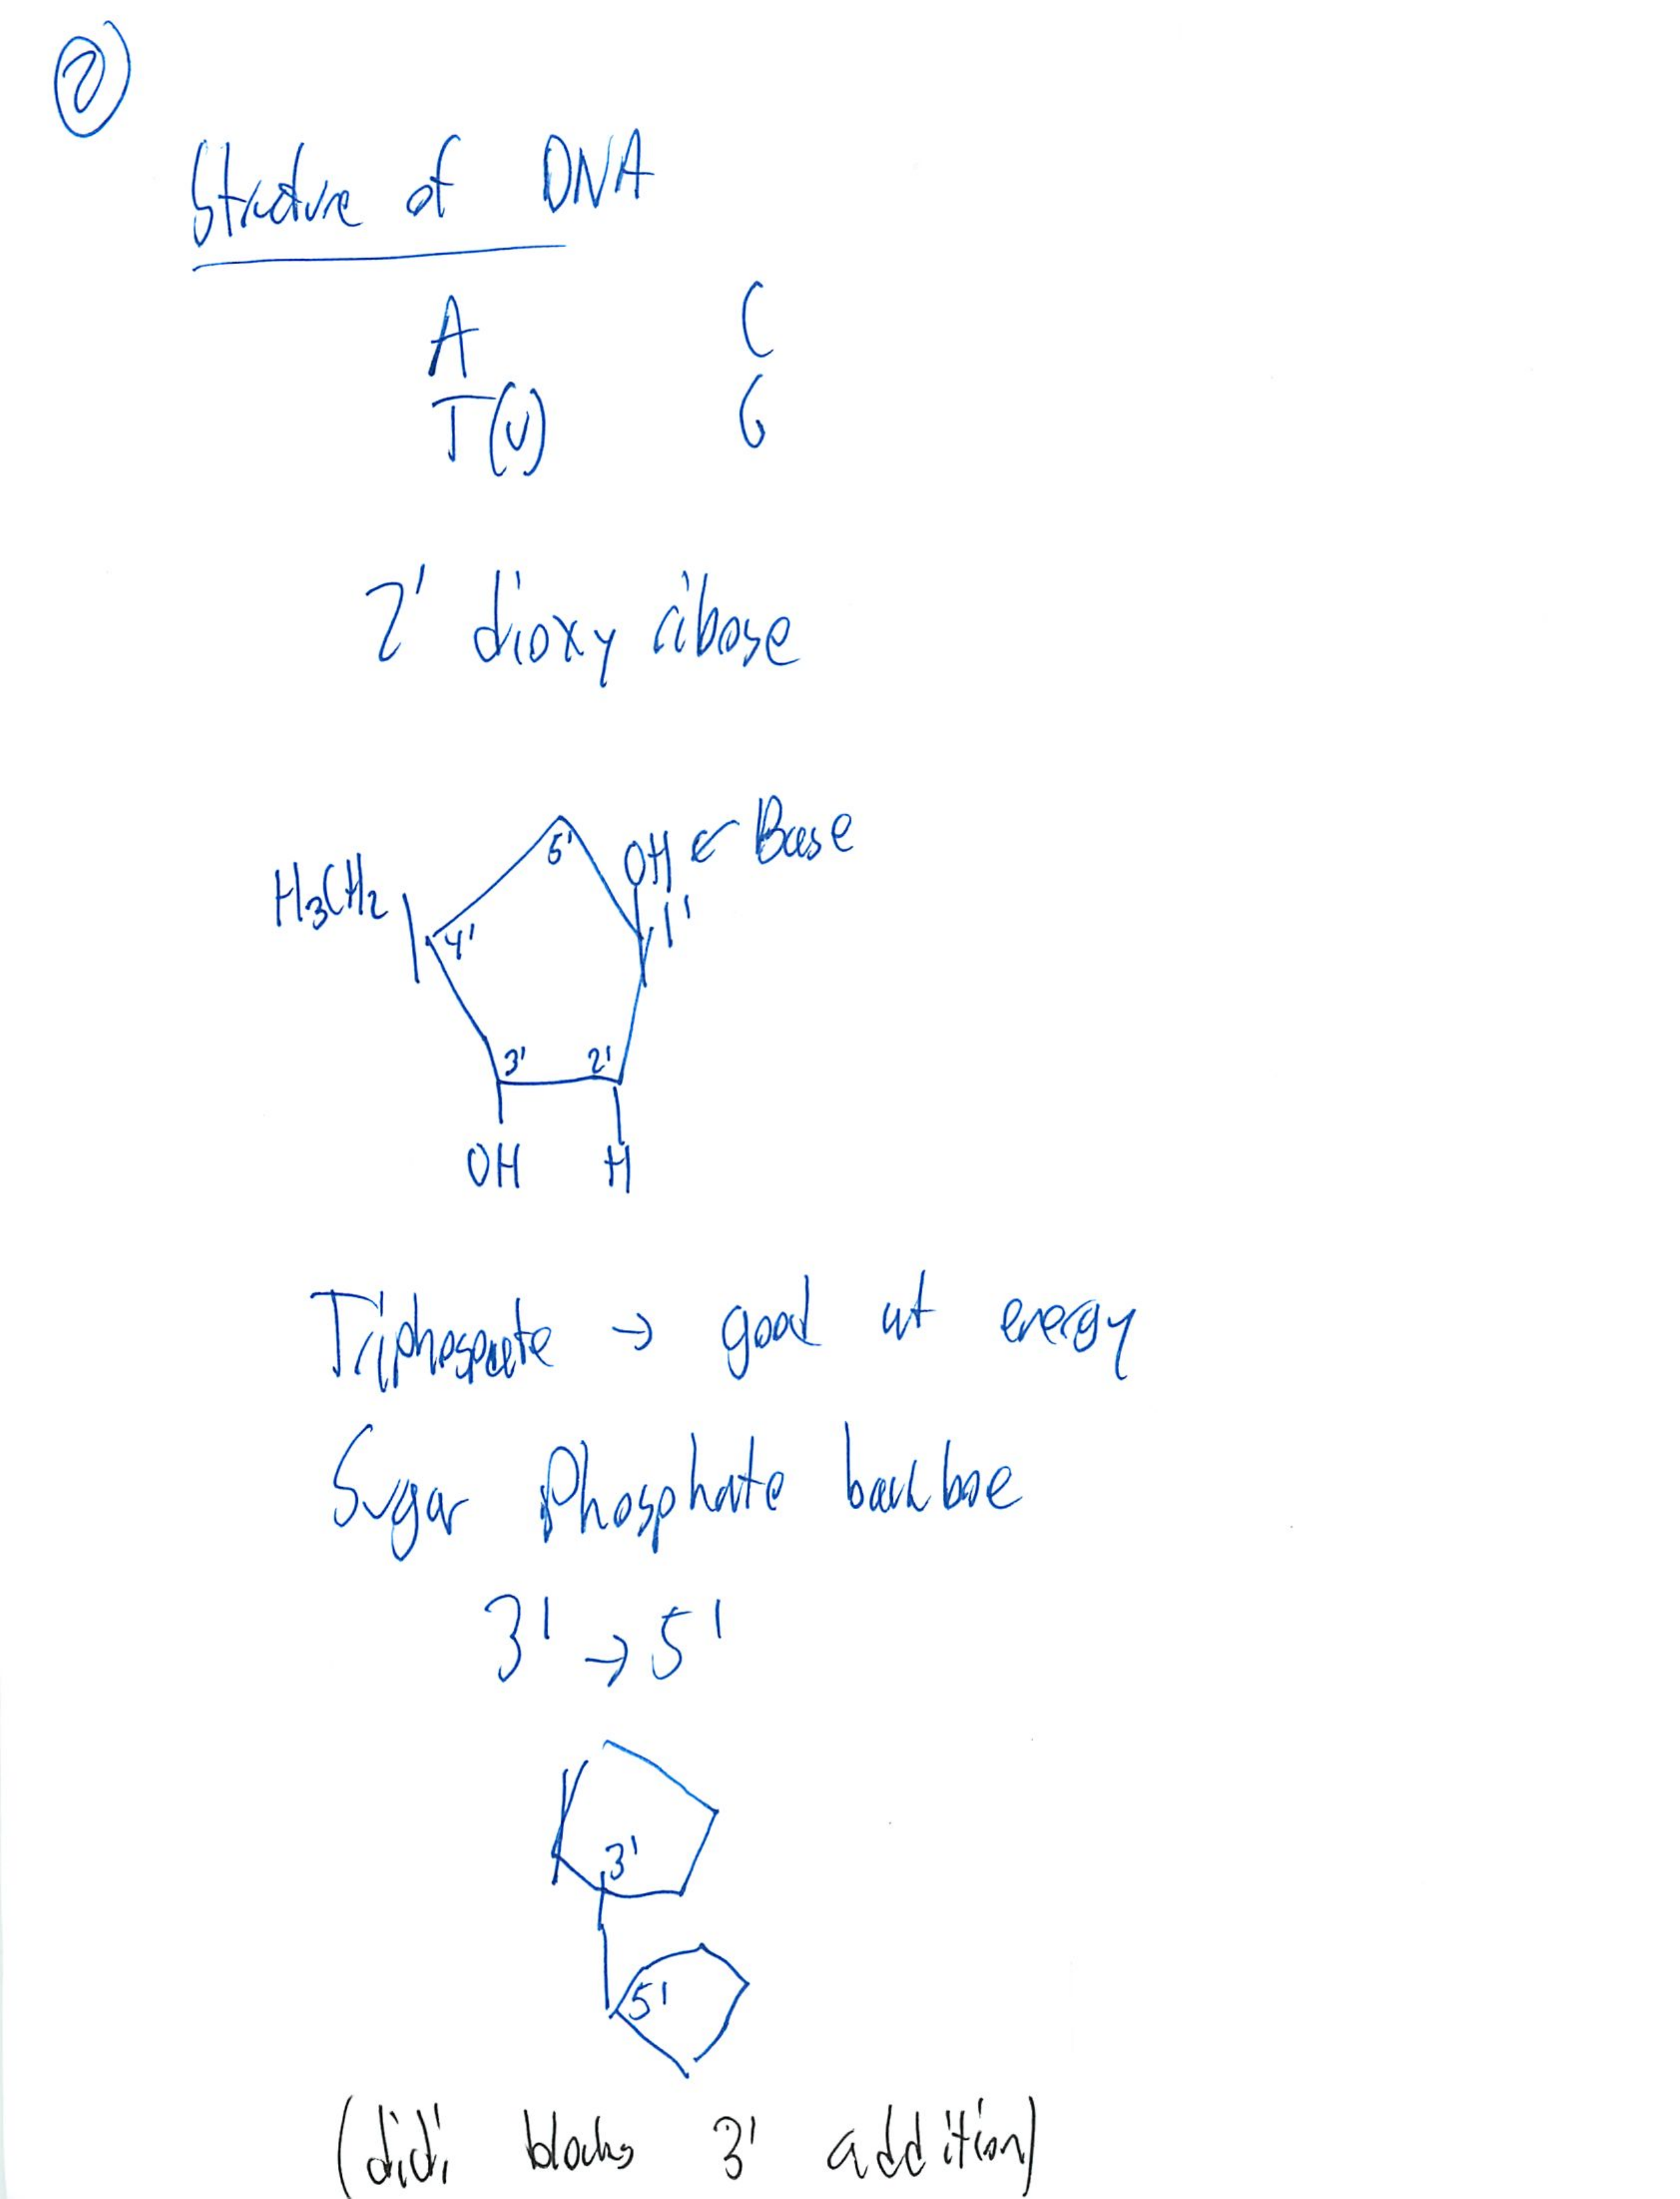 2
Structure of DNA
A C
T(U) G
2' dioxy ribose
5' OH ← Base
H3CH2 4' 1'
3' 2'
OH H
Triphospate → good at energy
Sugar Phosphate backbone
3' → 5'
3'
5'
(didi blocks 3' addition)